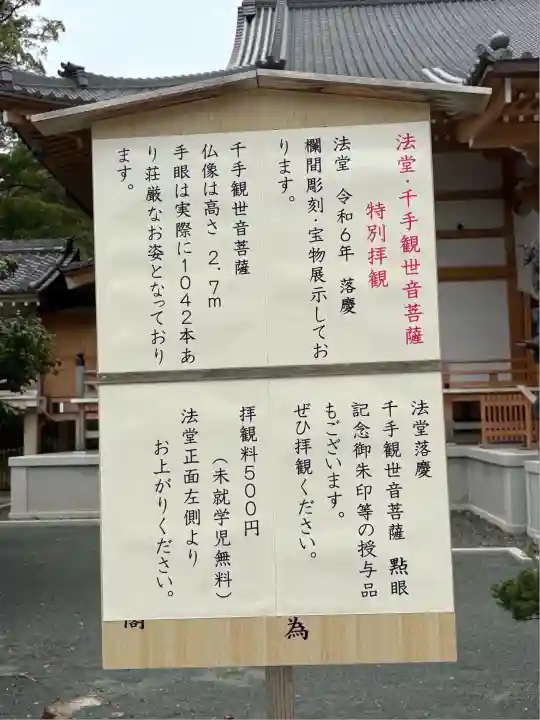 法堂・千手観世音菩薩
特別拝観
法堂 令和6年 落慶
欄間彫刻・宝物展示してお
ります。
千手観世音菩薩
仏像は高さ 2.7m
手眼は実際に1042本あ
り荘厳なお姿となっており
ます。
法堂落慶
千手観世音菩薩 點眼
記念御朱印等の授与品
もございます。
ぜひ拝観ください。
拝観料500円
(未就学児無料)
法堂正面左側より
お上がりください。
為